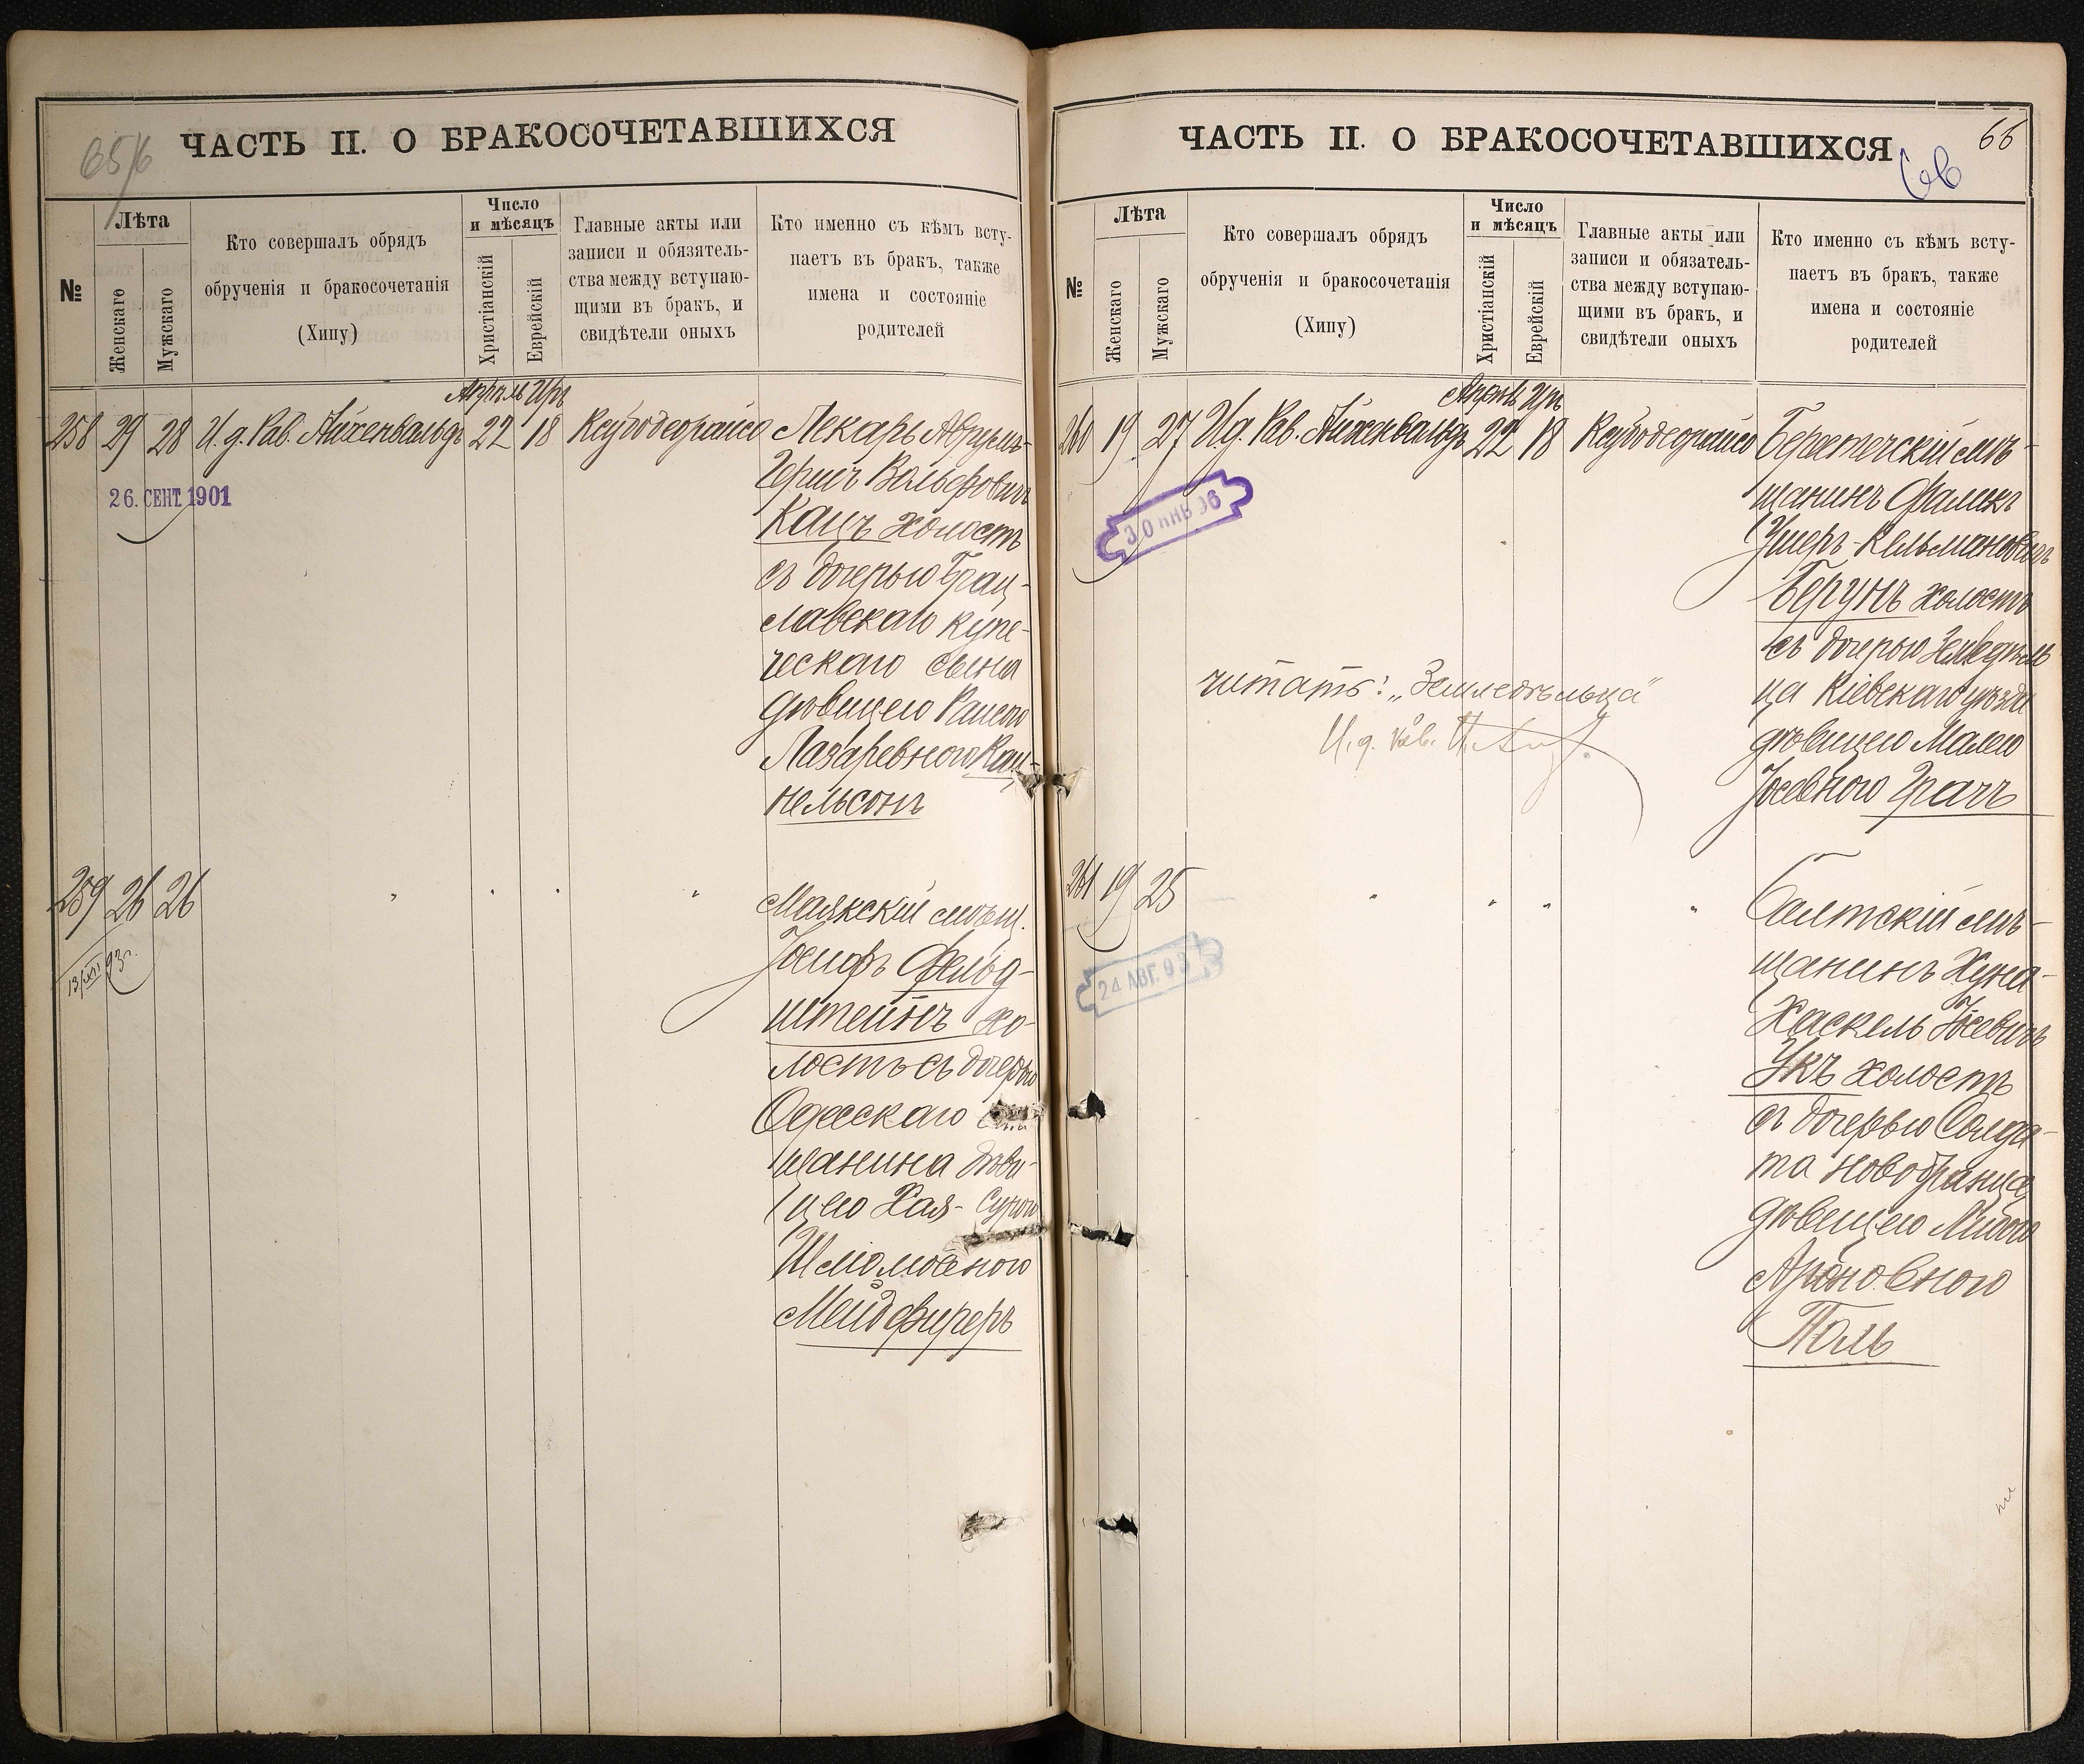 65/6
ЧАСТЬ II. О БРАКОСОЧЕТАВШИХСЯ
№
Лѣта
Женскаго
Мужскаго
Кто совершалъ обрядъ
обрученія и бракосочетанія
(Хипу)
Число
и мѣсяцъ
Христіанскій
Еврейскій
Главные акты или
записи и обязятель-
ства между вступаю-
щими въ бракъ, и
свидѣтели оныхъ
Кто именно съ кѣмъ всту-
паетъ въ бракъ, также
имена и состояніе
родителей
Апрѣль Иръ
258 29 28 И. д. Рав. Айхенвальдъ 22 18 Ксубодеорайсо Лекарь Аврумъ-
26. СЕНТ. 1901
Гершъ Вольфовичъ
Кацъ холостъ
съ дочерью Брац-
лавскаго купе-
ческаго сына
дѣвицею Рашею
Лазаревною Кац-
нельсонъ
259 26 26 " " " "
13/VII 93 г.
Маякскій мѣщ.
Іосифъ Фельд-
штейнъ хо-
лостъ съ дочерью
Одесскаго
щанина дѣви-
цею Хая- Сурою
Шліомовною
Мейдфиреръ
ЧАСТЬ II. О БРАКОСОЧЕТАВШИХСЯ
66
66
№
Лѣта
Женскаго
Мужскаго
Кто совершалъ обрядъ
обрученія и бракосочетанія
(Хипу)
Число
и мѣсяцъ
Христіанскій
Еврейскій
Главные акты или
записи и обязатель-
ства между вступаю-
щими въ бракъ, и
свидѣтели оныхъ
Кто именно съ кѣмъ всту-
паетъ въ бракъ, также
имена и состояніе
родителей
Апрѣль Иръ
260 19 27 И.д. Рав. Айхенвальдъ 22 18 Ксубодеорайсо Берстечскій мѣ-
30 ЯНВ 96
щанинъ Фалекъ
Ушеръ-Кельмановичъ
Берунъ холостъ
съ дочерью Земледѣль
ца Кіевскаго уѣзда
дѣвицею Малею
Іосевною Грачъ
читать: „Земледѣльца"
И. д. Рав.
261 19 25 " " " "
24 АВГ. 93
Балтскій мѣ-
щанинъ Хуна-
Хаскель Іосевичъ
Укъ холостъ
съ дочерью Солда-
та новобранца
дѣвицею Либою
Ароновною
Поль